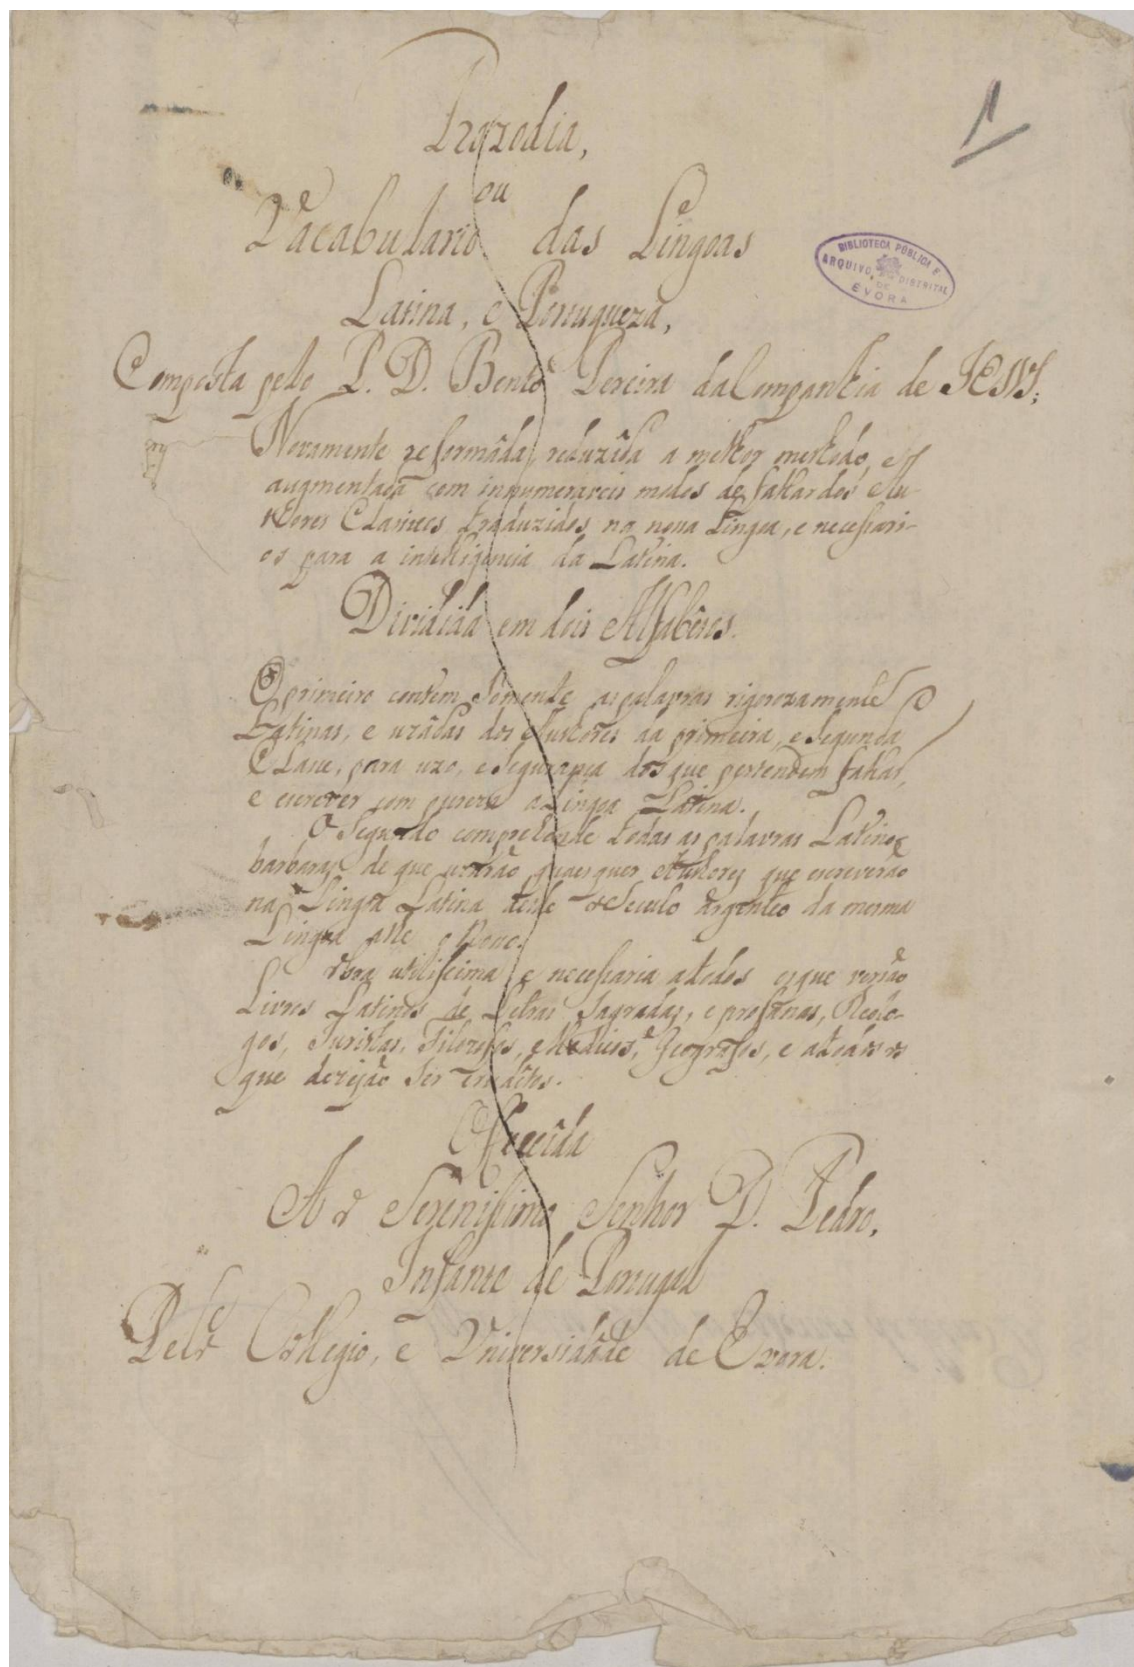 Prozodia,
1
ou
Vocabulario das Lingoas
BIBLIOTECA PÚBLICA E
ARQUIVO DISTRITAL
DE
EVORA
Latina, e Portugueza,
Composta pelo P. D. Bento Pereira da Companhia de JESUS;
Novamente reformâda, reduzîda a melhor methodo, e
augmentada com innumeraveis modos de fallar dos Au-
thores Classicos traduzidos na nossa Lingoa, e necessari-
os para a intelligencia da Latina.
Dividida em dois Alfabêtos.
O primeiro contêm sómente as palavras rigorozamente
Latinas, e uzâdas dos Authores da primeira, e segunda
Classe, para uzo, e segurança dos que pertendem fallar,
e escrever com pureza a Lingoa Latina.
O Segundo comprehende todas as palavras Latino
barbaras de que uzárão quaesquer Authores que escreverão
na Lingoa Latina desde o Seculo argenteo da mesma
Lingoa athe o Nono.
Obra utilissima, e necessaria a todos os que versão
Livros Latinos de Letras Sagradas, e profanas, Theolo-
gos, Juristas, Filozofos, e Medicos, Geografos, e a todos os
que dezejão ser erudîtos.
Offerecîda
Ao Serenissimo Senhor D. Pedro,
Infante de Portugal
Pelo Collegio, e Universidâde de Evora.